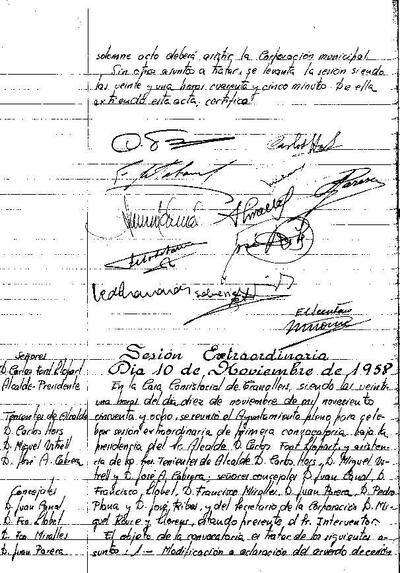 solemne acto deberá asistir la Corporación municipal
Sin otros asuntos a tratar, se levanta la sesión siendo
las veinte y una horas cuarenta y cinco minutos. De ella
extiendo esta acta, certifico.
Carlos
El Secretario
Sesión Extraordinaria
Día 10 de Noviembre de 1958
Señores
D. Carlos Font Llopart
Alcalde-Presidente
Tenientes de Alcalde
D. Carlos Hors
D. Miguel
D. José A. Cabrera
Concejales
D. Juan Canal
D. Fco. Llobet
D. Fco. Miralles
D. Juan Parera
En la Casa Consistorial de Granollers, siendo las veinte
una horas del día diez de noviembre de mil novecientos
cincuenta y ocho, se reunió el Ayuntamiento pleno para cele-
brar sesión extraordinaria de primera convocatoria, bajo la
presidencia del Sr. Alcalde D. Carlos Font Llopart, y asisten-
cia de los Sres. Tenientes de Alcalde D. Carlos Hors, D. Miguel
y D. José A. Cabrera; señores concejales D. Juan Canal, D.
Francisco Llobet, D. Francisco Miralles, D. Juan Parera, D. Pedro
Plana y D. José Ribas, y del Secretario de la Corporación D. Mi-
guel y Llorens, estando presente el Sr. Interventor.
El objeto de la convocatoria, es tratar de los siguientes a-
suntos: 1.- Modificación o aclaración del acuerdo de